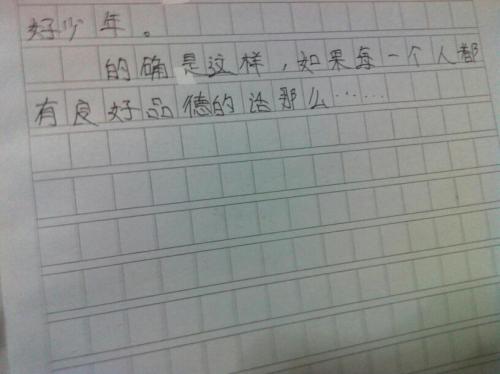 好少年。
的确是这样，如果每一个人都
有良好品德的话那么……